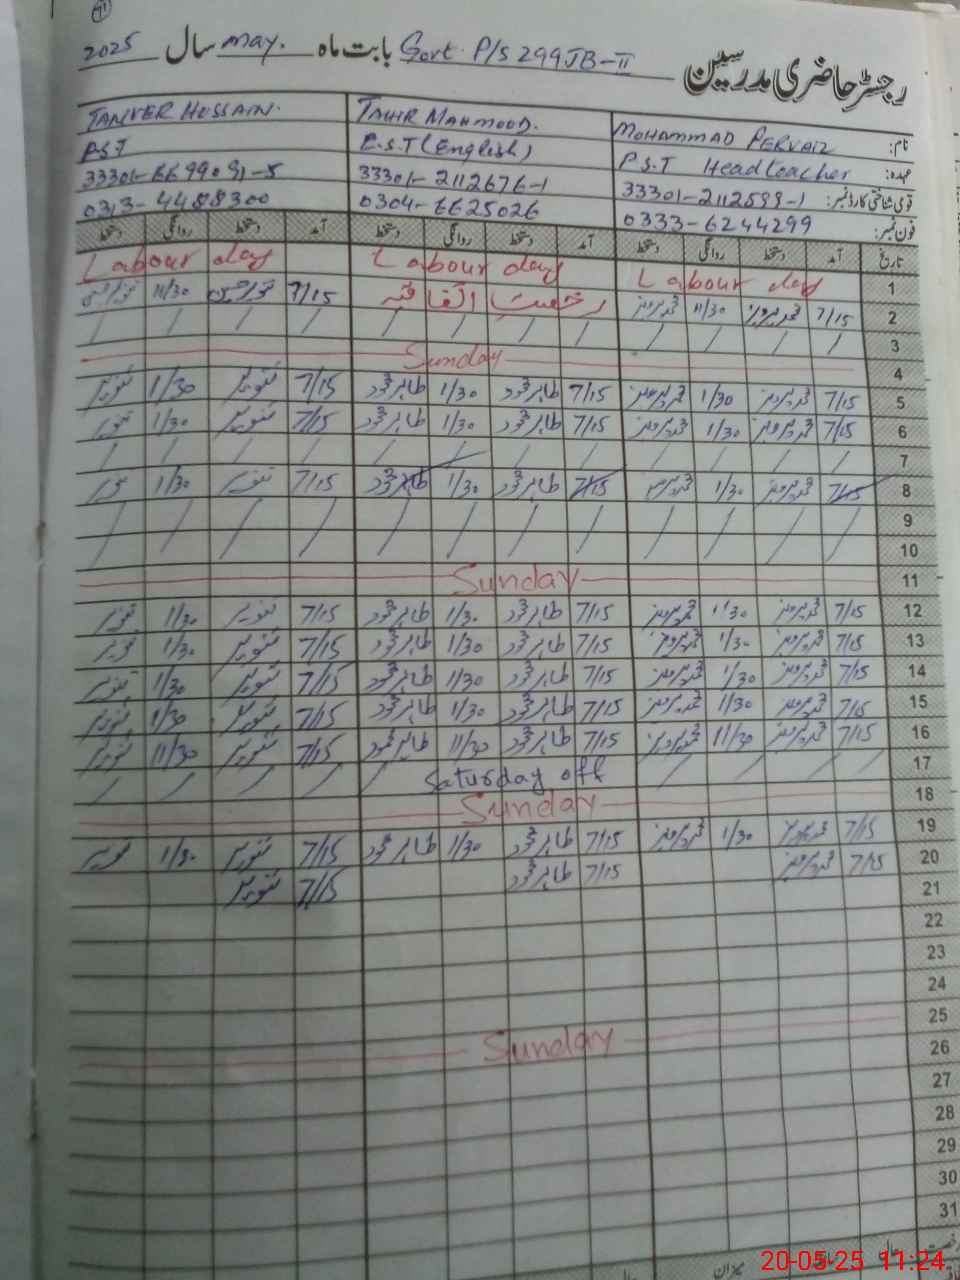 91
رجسٹر حاضری مدرسین Govt P/S 299JB-II بابت ماہ may. سال 2025
نام: MOHAMMAD PERVAIZ TAHIR MAHMOOD. TANVER HUSSAIN.
عہدہ: P.S.T Headteacher E.S.T (English) PST
قومی شناختی کارڈ نمبر: 33301-2112676-1
فون نمبر: 0333-6244299 0304-6625026
تاریخ آمد دستخط روانگی دستخط آمد دستخط روانگی دستخط آمد دستخط روانگی دستخط
1 Labour day Labour day Labour day
2 7/15 محمد پرویز 11/30 محمد پرویز رخصت اتفاقیہ 7/15 تنویر حسین 11/30 تنویر حسین
3 / / / / / / / / / / / /
4 Sunday
5 7/15 محمد پرویز 1/30 محمد پرویز 7/15 طاہر محمود 1/30 طاہر محمود 7/15 تنویر 1/30 تنویر
6 7/15 محمد پرویز 1/30 محمد پرویز 7/15 طاہر محمود 1/30 طاہر محمود 7/15 تنویر 1/30 تنویر
7 / / / / / / / / / / / /
8 7/15 محمد پرویز 1/30 محمد پرویز 7/15 طاہر محمود 1/30 طاہر محمود 7/15 تنویر 1/30 تنویر
9 / / / / / / / / / / / /
10 / / / / / / / / / / / /
11 Sunday
12 7/15 محمد پرویز 1/30 محمد پرویز 7/15 طاہر محمود 1/30 طاہر محمود 7/15 تنویر 1/30 تنویر
13 7/15 محمد پرویز 1/30 محمد پرویز 7/15 طاہر محمود 1/30 طاہر محمود 7/15 تنویر 1/30 تنویر
14 7/15 محمد پرویز 1/30 محمد پرویز 7/15 طاہر محمود 1/30 طاہر محمود 7/15 تنویر 1/30 تنویر
15 7/15 محمد پرویز 1/30 محمد پرویز 7/15 طاہر محمود 1/30 طاہر محمود 7/15 تنویر 1/30 تنویر
16 7/15 محمد پرویز 11/30 محمد پرویز 7/15 طاہر محمود 11/30 طاہر محمود 7/15 تنویر 11/30 تنویر
17 / / / / Saturday off / / / / /
18 Sunday
19 7/15 محمد پرویز 1/30 محمد پرویز 7/15 طاہر محمود 1/30 طاہر محمود 7/15 تنویر 1/30 تنویر
20 7/15 محمد پرویز 7/15 طاہر محمود 7/15 تنویر
21
22
23
24
25 Sunday
26
27
28
29
30
31
رخصت میزان
20-05-25 11:24